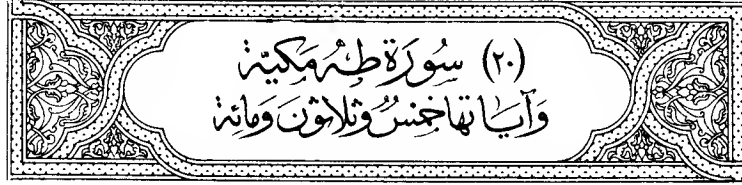 (٢٠) سُورَة طٰهٰ مَكيّة
وَآيَاتها خمسٌ وثلاثون وَمائة